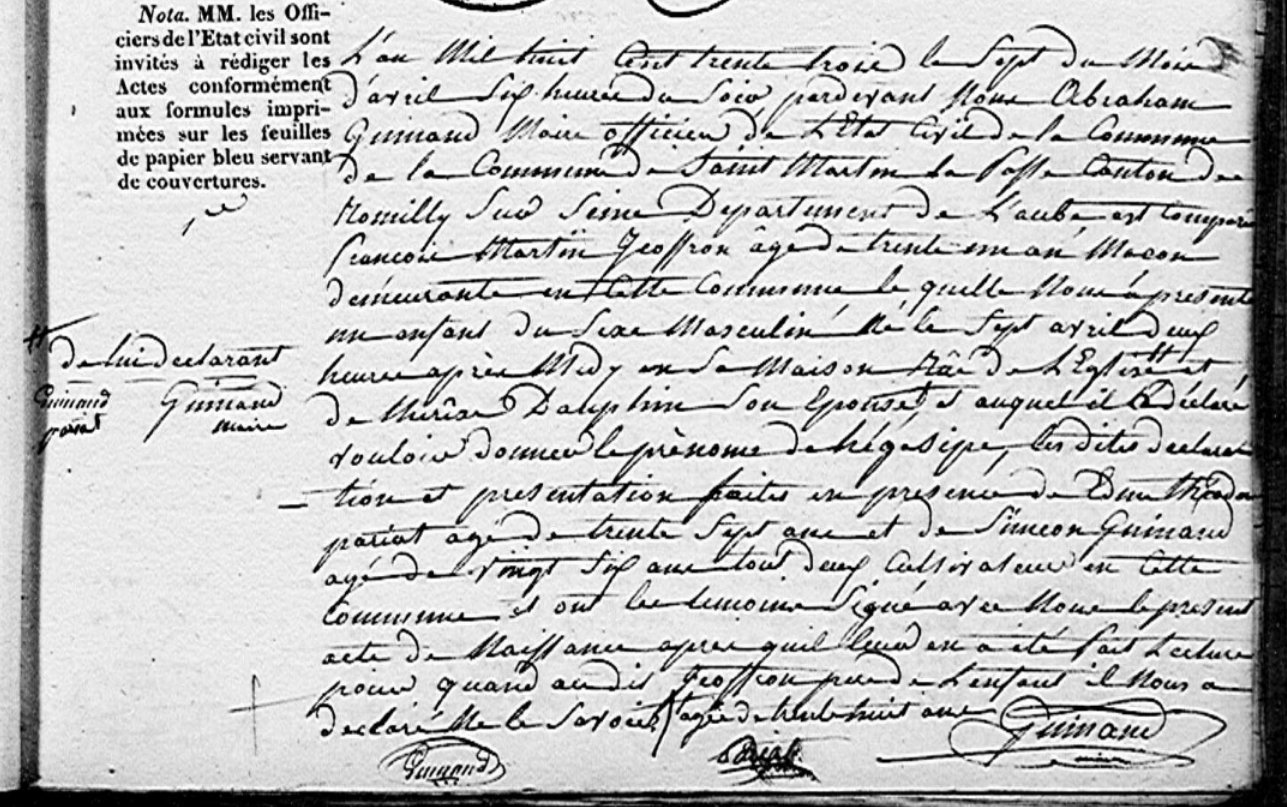 Nota. MM. les Offi-
ciers de l'Etat civil sont
invités à rédiger les
Actes conformément
aux formules impri-
mées sur les feuilles
de papier bleu servant
de couvertures.
L'an Mil huit Cent trente trois le Sept du Mois
d'avril Six heures du Soir, pardevant Nous Abraham
Guinand Maire officier de L'Etat Civil de la Commune
de la Commune de Saint Martin la fosse Canton de
Romilly Sur Seine Departement de L'aube est Comparu
francois Martin Geoffron âgé de trente un an Macon
demeurante en Cette Commune le quelle Nous á presenté
un enfant du Sexe Masculin Né le Sept avril deux
heures après Midy en Sa Maison Rue de L'Eglise # et
de Thérèse Dauphin Son Epouse, et auquel il á déclaré
vouloir donner le prènoms de hégesipe, les dites declara
tion et presentation faites en presence de Edme théodore
pariat agé de trente Sept ans et de Simeon Guinand
agé de vingt Six ans tous deux Cultivateurs en Cette
Commune et ont les temoins Signé avec Nous le present
acte de Naissance apres quil leurs en a été fait Lecture
pour quand au dit Geoffron pere de L'enfant il Nous a
declaré Ne le Savoir / agée de trente huit ans Guinand
maire
Guinand
# de lui declarant
Guinand Guinand
pariat maire